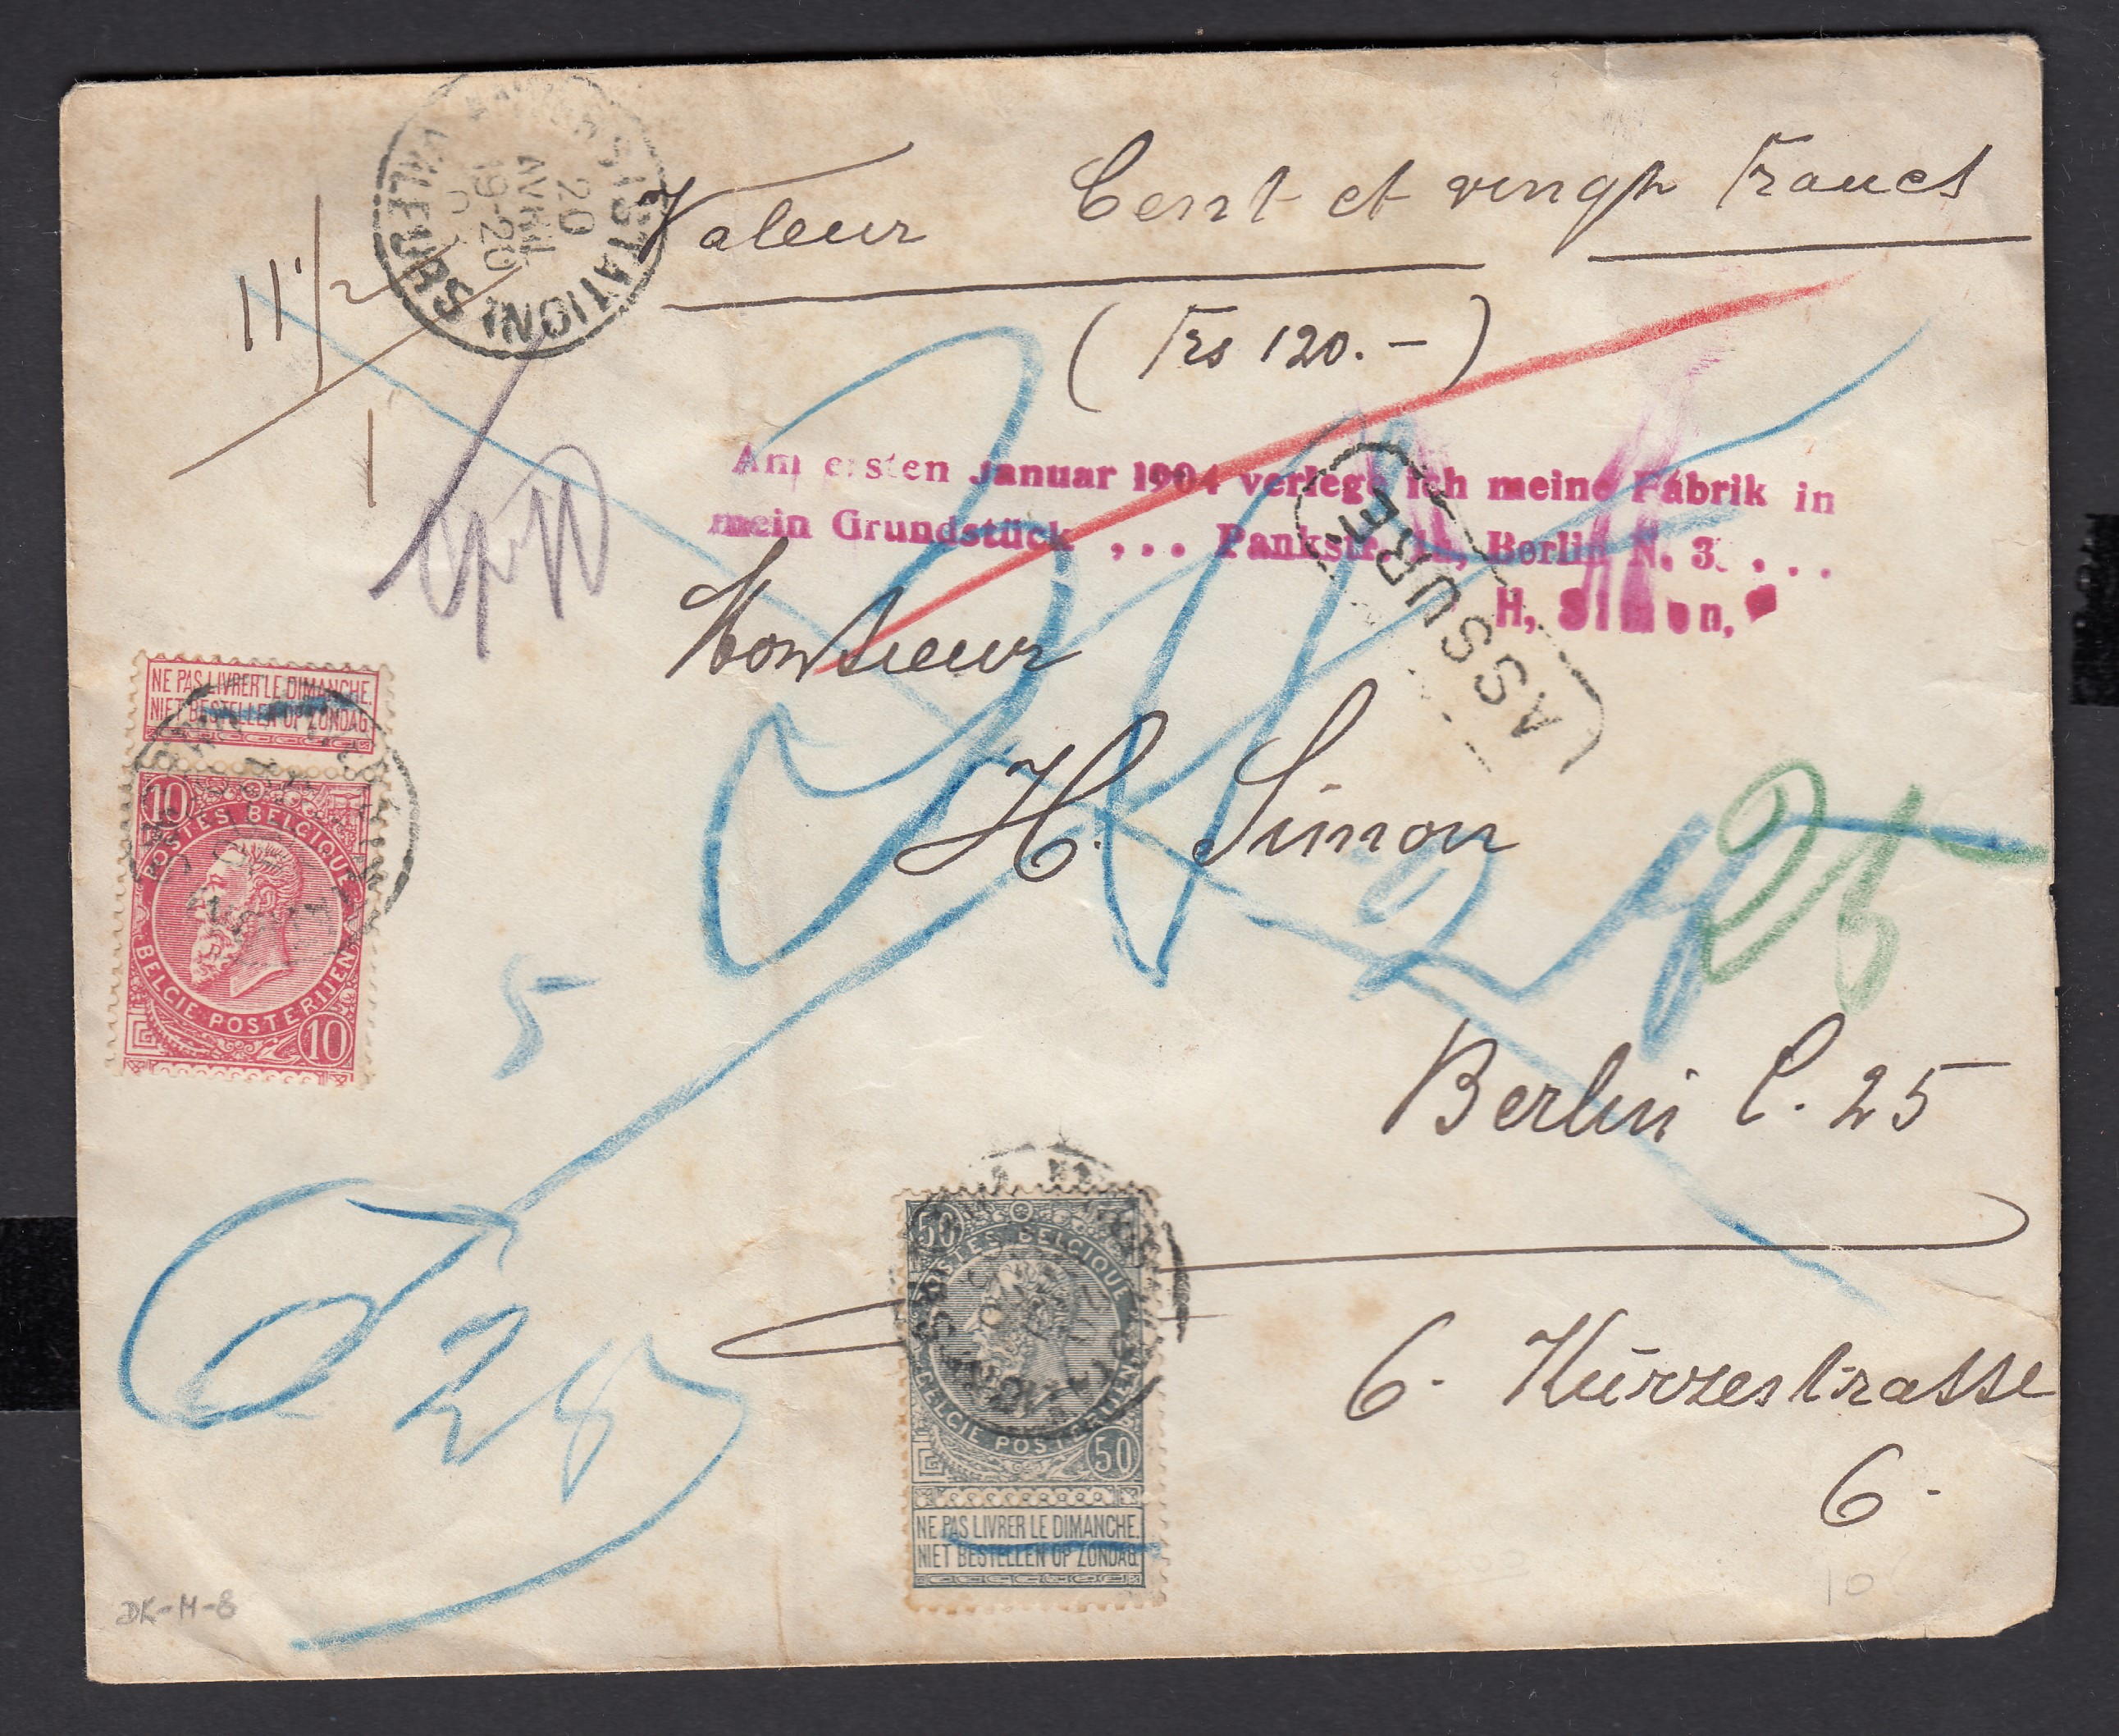 STATION VALEURS
20
AVRIL
19-20
Valeur Cent et vingt Francs
(Frs 120.-)
11 1/2
1
Am ersten Januar 1904 verlege ich meine Fabrik in
mein Grundstück , . . Pankstr. Berlin N. 3. . . .
H. Simon,
ASSURÉ
Monsieur
H. Simon
NE PAS LIVRER LE DIMANCHE.
NIET BESTELLEN OP ZONDAG
10
POSTES BELGIQUE
BELGIE POSTERIJEN
10
5
25
Berlin C. 25
50
POSTES BELGIQUE
BELGIE POSTERIJEN
50
NE PAS LIVRER LE DIMANCHE.
NIET BESTELLEN OP ZONDAG
28
6. Kürzestrasse
6.
DK-M-8
10